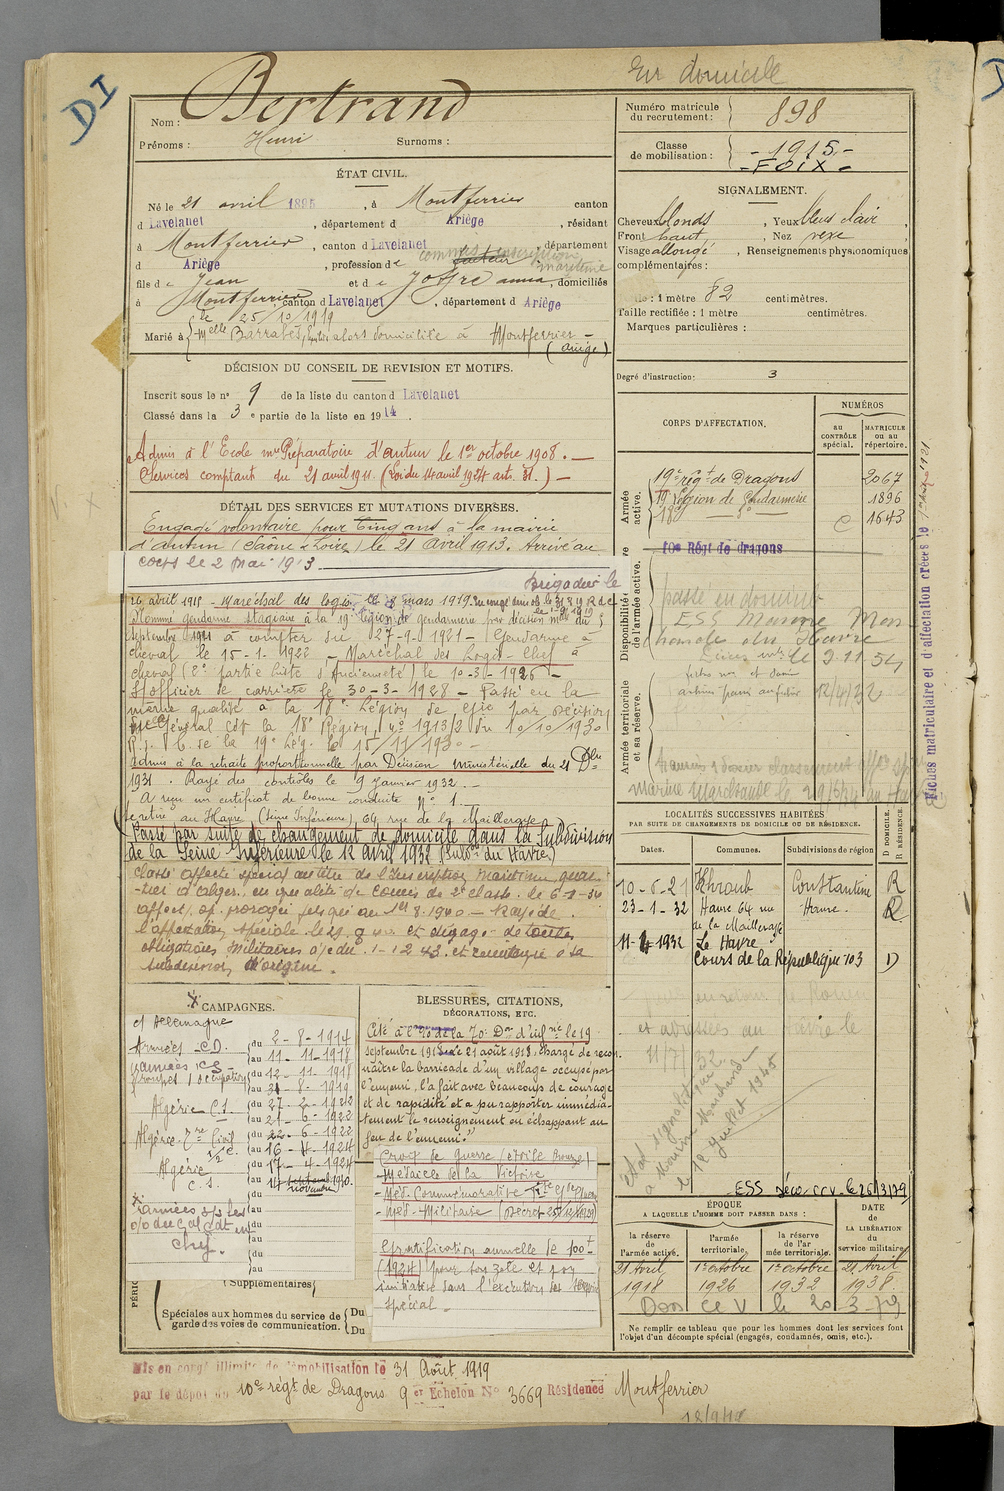 DI
Sur domicile
Nom : Bertrand
Prénoms : Henri Surnoms :
ÉTAT CIVIL.
Né le 21 avril 1895, à Montferrier canton
d Lavelanet, département d Ariège, résidant
à Montferrier, canton d Lavelanet, département
d Ariège, profession de
maritime
fils de Jean et de Joffre anna, domiciliés
à Montferrier, canton d Lavelanet, département d Ariège
le 25/10/1919
Marié à Melle Barrabès, alors domiciliée à Montferrier -
(Ariège)
DÉCISION DU CONSEIL DE REVISION ET MOTIFS.
Inscrit sous le n° 9 de la liste du canton d Lavelanet
Classé dans la 3e partie de la liste en 1914.
Admis à l'Ecole mre Préparatoire d'autun le 1er octobre 1908. —
Services comptant du 21 avril 1911. (Loi du 14 avril 1924 art. 31.) —
DÉTAIL DES SERVICES ET MUTATIONS DIVERSES.
Engagé volontaire pour Cinq ans à la mairie
d'autun (Saône & Loire) le 21 Avril 1913. Arrivé au
corps le 2 Mai 1913
Brigadier le
16 avril 1915 - Maréchal des logis le 8 mars 1919.
Nommé gendarme stagiaire à la 19e Légion de gendarmerie par décision melle du 5
septembre 1921 à compter du 27-9-1921 - Gendarme à
cheval le 15-1-1922 - Maréchal des Logis-Chef à
cheval (2e partie Liste d'Ancienneté) le 10-3-1926 -
S/officier de carrière le 30-3-1928 - Passé en la
même qualité à la 18e Légion de gie par décision
du Général Cdt la 18e Région, n° 1913/2 du 10/10/1930
R.d.C. de la 19e Lég. le 15/11/1930 -
Admis à la retraite proportionnelle par Décision ministérielle du 21 Dbre
1931. Rayé des contrôles le 9 Janvier 1932. -
A reçu un certificat de bonne conduite n° 1. -
Se retire au Havre, (Seine Inférieure), 64 rue de la Mailleraye
Passé par suite de changement de domicile dans la Subdivision
de la Seine-Inférieure le 12 avril 1932 (Subdon du Havre.)
Classé affecté spécial au titre de l'inscription maritime quar
-tier d'alger en qualité de Commis de 2e classe le 6-1-30
affect. sp. prorogée jusqu'au 1er 8-1940 - Rayé de
l'affectation spéciale le 21 et dégagé de toutes
obligations militaires à/c du 1-12 43 et
subdivision d'origine.
CAMPAGNES.
c/ Allemagne
Armées C.D. du 2-8-1914
au 11-11-1918
armées C.S. du 12-11-1918
(Troupes d'occupation) au 31-8-1919
Algérie C.S. du 27-2-1922
au 21-6-1922
Algérie Gre Civil du 22-6-1922
1/2 C. au 16-4-1924
Algérie du 17-4-1924
C.S. au 14 novembre 1930.
du
au
du
au
du
au
chef.
Supplémentaires
Spéciales aux hommes du service de
garde des voies de communication.
Du
Du
BLESSURES, CITATIONS,
DÉCORATIONS, ETC.
Cité à l'O. de la 70e Don d'infrie le 19
septembre 1918 le 21 août 1918, chargé de recon.
naître la barricade d'un village occupé par
l'ennemi, l'a fait avec beaucoup de courage
et de rapidité et a pu rapporter immédia-
tement le renseignement en échappant au
feu de l'ennemi."
Croix de Guerre (étoile Bronze)
- Médaille de la Victoire
- Méd. Commémorative
- Méd. Militaire (Décret 25/12/1931)
Gratification annuelle de 100f
(1924) pour son zèle et son
initiative dans l'exécution du service
spécial.
Mis en congé illimité de démobilisation le 31 Août 1919
par le dépôt du 10e régt de Dragons 9er Echelon N° 3669 Résidence Montferrier
18/9/19
Numéro matricule
du recrutement : 898
Classe
de mobilisation : - 1915 -
- FOIX -
SIGNALEMENT.
Cheveux blonds, Yeux bleus clair,
Front haut, Nez
Visage allongé, Renseignements physionomiques
complémentaires :
1 mètre 82 centimètres.
Taille rectifiée : 1 mètre centimètres.
Marques particulières :
Degré d'instruction : 3
CORPS D'AFFECTATION.
NUMÉROS
AU CONTRÔLE spécial.
MATRICULE ou au répertoire.
Armée active.
19e régt de Dragons 2067
19e Légion de Gendarmerie 1896
18e — do — C 1643
Disponibilité et réserve de l'armée active.
10e Régt de dragons
passé en domicile
ESS Marine Mar
chande du Havre
le 9.11.54
12/4/32
Armée territoriale et sa réserve.
marine marchande le
Fiches matriculaire et d'affectation créées le
LOCALITÉS SUCCESSIVES HABITÉES
PAR SUITE DE CHANGEMENTS DE DOMICILE OU DE RÉSIDENCE.
Dates. Communes. Subdivisions de région
D DOMICILE. R RÉSIDENCE
10-6-21 Khroub Constantine R
23-1-32 Havre 64 rue Havre. R
de la Mailleraye
11-4-1932 Le Havre
Cours de la République 103 D
11/7/32
12 Juillet 1945
ESS 26/3/79
ÉPOQUE
A LAQUELLE L'HOMME DOIT PASSER DANS :
DATE de LA LIBÉRATION du service militaire
la réserve de l'armée active.
l'armée territoriale.
la réserve de l'armée territoriale.
21 Avril 1918
1er octobre 1926
1er octobre 1932
21 Avril 1938
le 20-3-79
Ne remplir ce tableau que pour les hommes dont les services font
l'objet d'un décompte spécial (engagés, condamnés, omis, etc.).